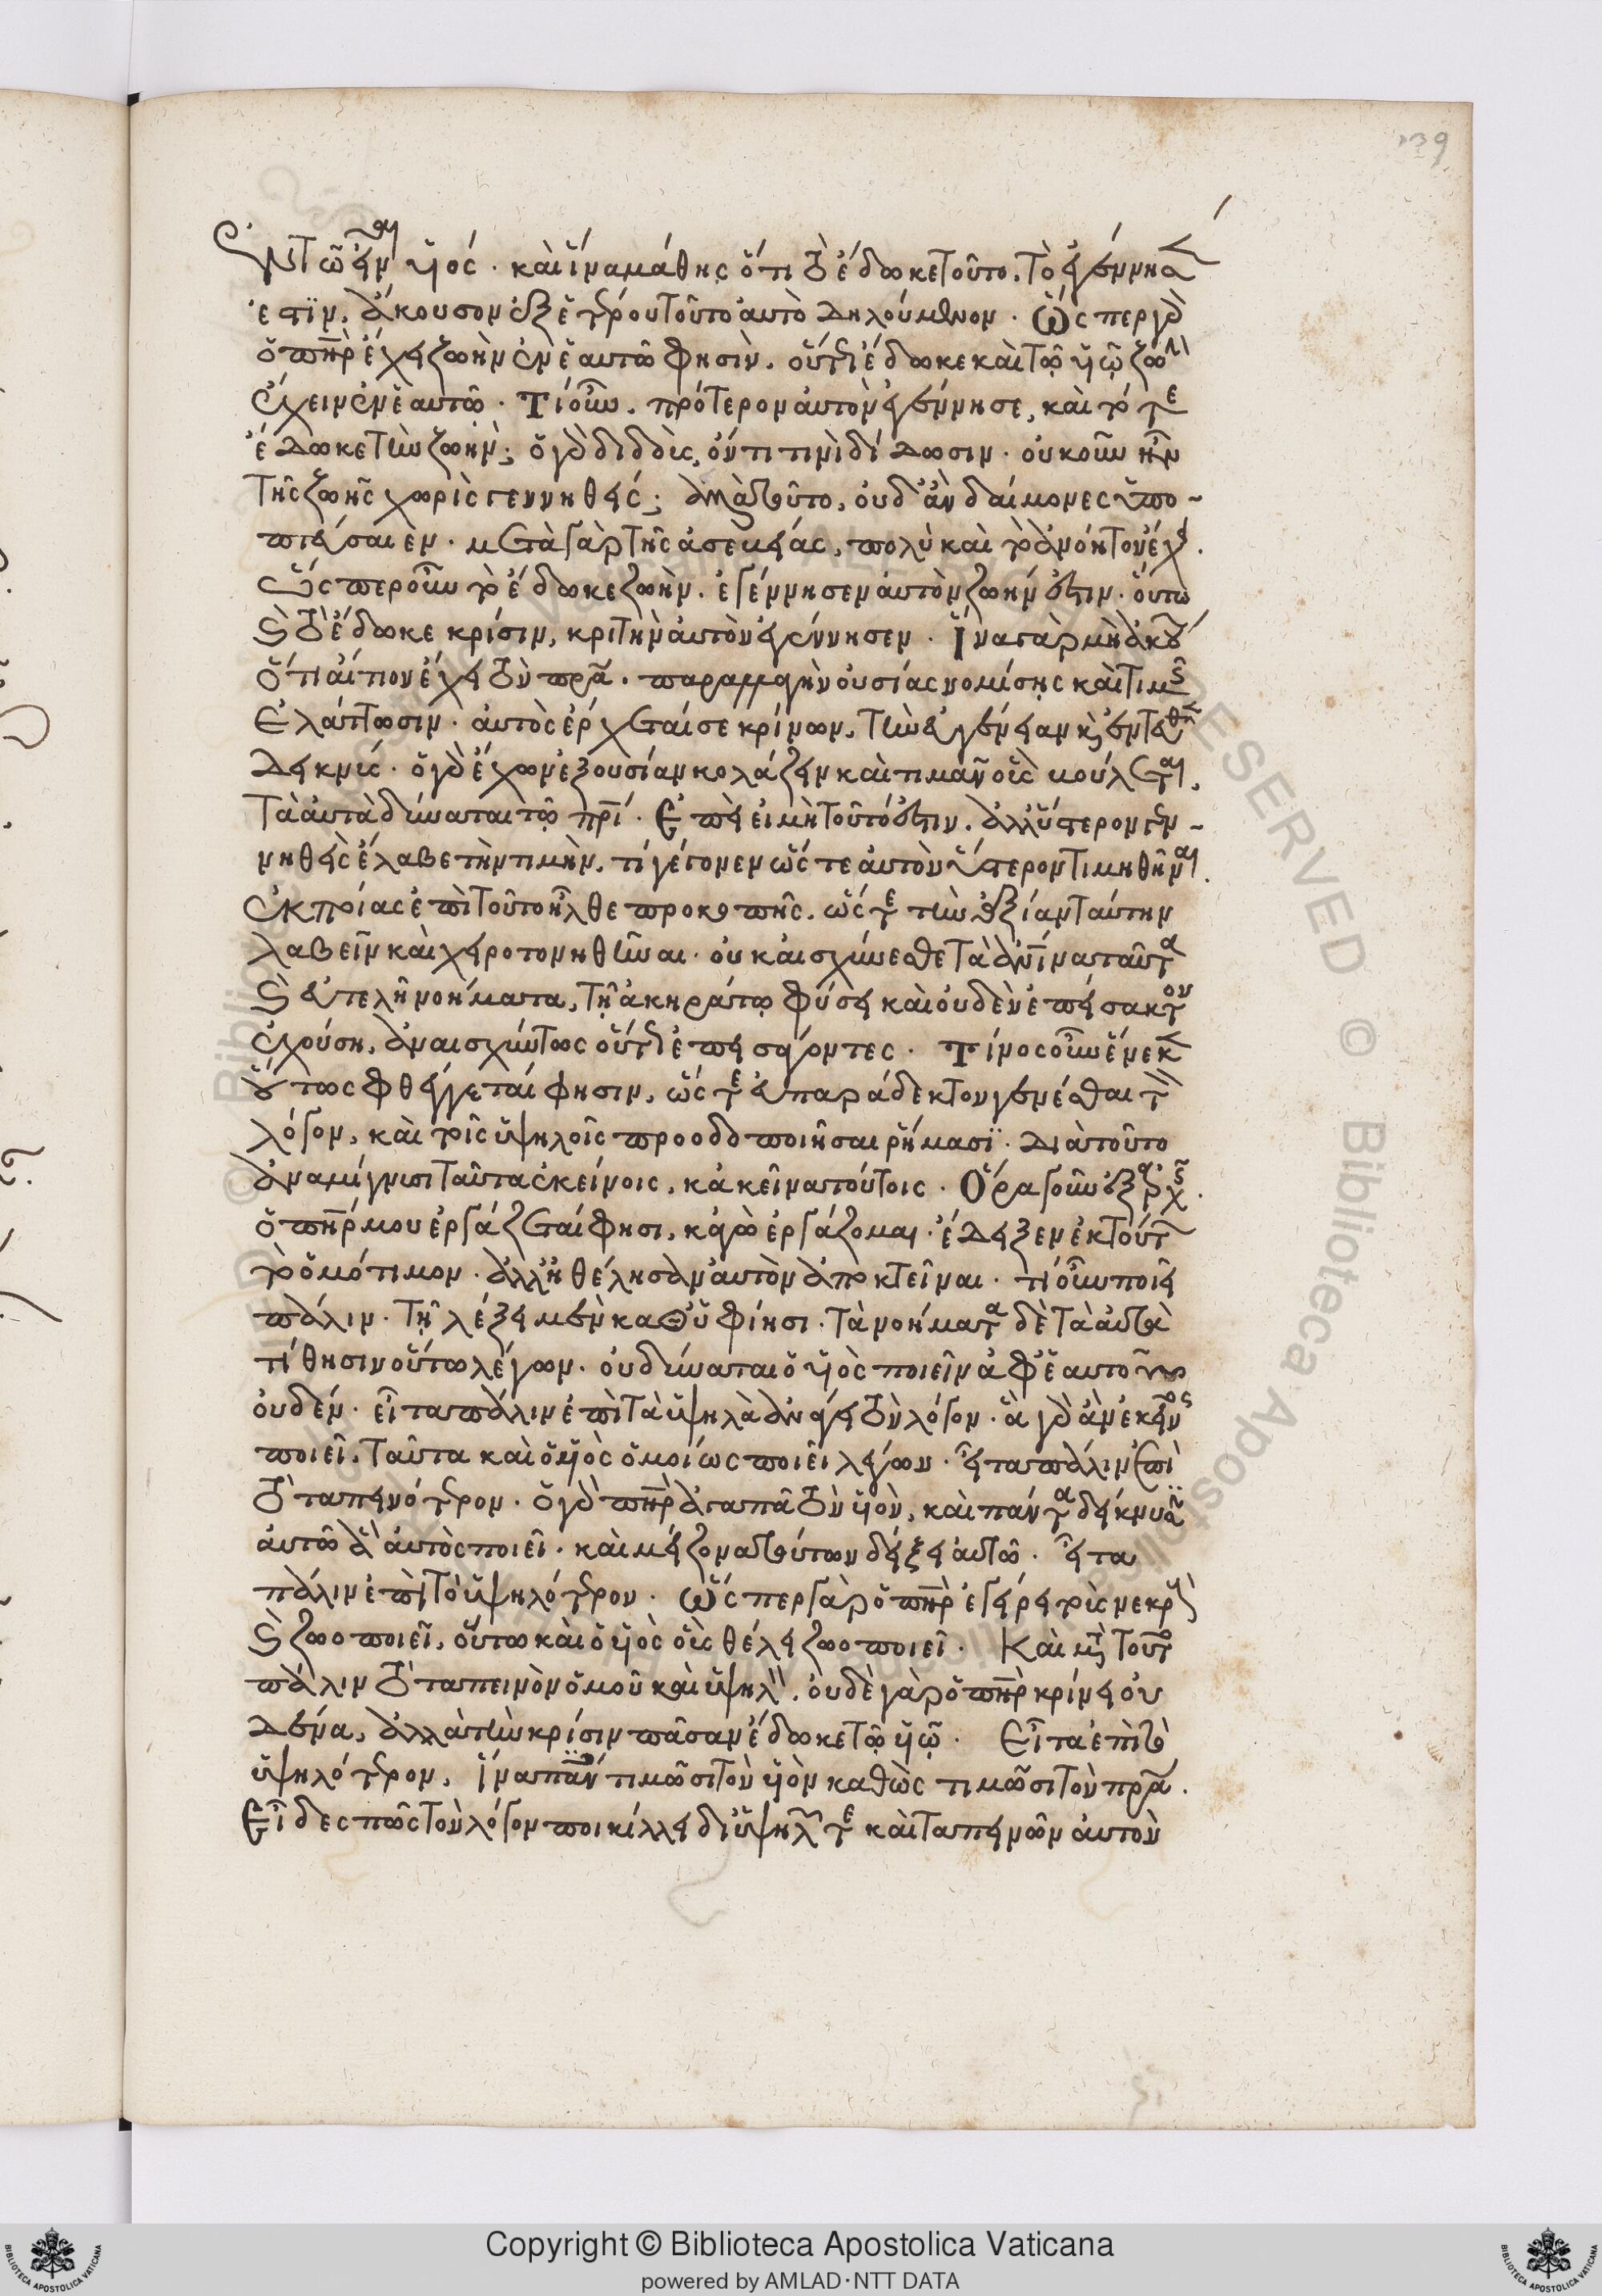 139
ἐν τῷ εἶναι υἱός. καὶ ἵνα μάθῃς ὅτι τὸ ἔδωκε τοῦτο, τὸ ἐγέννησεν
ἐστιν, ἄκουσον ἐξ ἑτέρου τοῦτο αὐτὸ δηλούμενον. Ὥσπερ γὰρ
ὁ πηρ ἔχει ζωὴν ἐν ἑαυτῷ φησὶν, οὕτως ἔδωκε καὶ τῷ υἱῷ ζωὴν
ἔχειν ἐν ἑαυτῷ. Τί οὖν, πρότερον αὐτὸν ἐγέννησε, καὶ τότε
ἔδωκε τὴν ζωήν; ὁ γὰρ διδοὺς, ὄντι τινὶ δίδωσιν. οὐκοῦν ἦν
τῆς ζωῆς χωρὶς γεννηθείς; ἀλλὰ τοῦτο, οὐδ' ἂν δαίμονες ὑπο-
πτεύσαιεν. μετὰ γὰρ τῆς ἀσεβείας, πολὺ καὶ τὸ ἀνόητον ἔχει.
Ὥσπερ οὖν τὸ ἔδωκε ζωὴν, ἐγέννησεν αὐτὸν ζωήν ἐστιν. οὕτω
καὶ τὸ ἔδωκε κρίσιν, κριτὴν αὐτὸν ἐγέννησεν. Ἵνα γὰρ μὴ ἀκού
ὅτι αἴτιον ἔχει τὸν πρα, παραλλαγὴν οὐσίας νομίσῃς καὶ τιμῆς
ἐλάττωσιν. αὐτὸς ἔρχεταί σε κρίνων, τὴν εὐγένειαν κ ἐντεῦθεν
δεικνύς. ὁ γὰρ ἔχων ἐξουσίαν κολάζειν καὶ τιμᾶν οὓς βούλεται,
τὰ αὐτὰ δύναται τῷ πρί. Ἐπεὶ εἰ μὴ τοῦτό ἐστιν, ἀλλ' ὕστερον γεν-
νηθεὶς ἔλαβε τὴν τιμὴν, τί γέγονεν ὥστε αὐτὸν ὕστερον τιμηθῆναι.
ἐκ ποίας ἐπὶ τοῦτο ἦλθε προκοπῆς, ὥστε τὴν ἀξίαν ταύτην
λαβεῖν καὶ χειροτονηθῆναι. οὐκ αἰσχύνεσθε τὰ ἀνινα ταῦτα
καὶ εὐτελῆ νοήματα, τῇ ἀκηράτῳ φύσει καὶ οὐδὲν ἐπείσακτον
ἐχούσῃ, ἀναισχύντως οὕτως ἐπεισάγοντες. Τίνος οὖν ἕνεκεν
οὕτως φθέγγεταί φησιν, ὥστε εὐπαράδεκτον γενέσθαι τὸν
λόγον, καὶ τοῖς ὑψηλοῖς προοδοποιῆσαι ῥήμασι. Διὰ τοῦτο
ἀναμίγνυσι ταῦτα ἐκείνοις, κἀκεῖνα τούτοις. Ὅρα γοῦν ἐξ ἀρχῆς.
ὁ πηρ μου ἐργάζεταί φησι, κἀγὼ ἐργάζομαι. ἔδειξεν ἐκ τούτου
τὸ ὁμότιμον. ἀλλ' ἠθέλησαν αὐτὸν ἀποκτεῖναι. τί οὖν ποιεῖ
πάλιν. τῇ λέξει μὲν καθυφίησι. τὰ νοήματα δὲ τὰ αὐτὰ
τίθησιν οὕτω λέγων. οὐ δύναται ὁ υἱὸς ποιεῖν ἀφ' ἑαυτοῦ
οὐδέν. εἶτα πάλιν ἐπὶ τὰ ὑψηλὰ ἀνάγει τὸν λόγον. ἃ γὰρ ἂν ἐκεῖνος
ποιεῖ, ταῦτα καὶ ὁ υἱὸς ὁμοίως ποιεῖ λέγων. εἶτα πάλιν ἐπὶ
τὸ ταπεινότερον. ὁ γὰρ πηρ ἀγαπᾶ τὸν υἱὸν, καὶ πάντα δείκνυσιν
αὐτῷ ἃ αὐτὸς ποιεῖ. καὶ μείζονα τούτων δείξει αὐτῷ. εἶτα
πάλιν ἐπὶ τὸ ὑψηλότερον. Ὥσπερ γὰρ ὁ πηρ ἐγείρει τοὺς νεκροὺς
καὶ ζωοποιεῖ, οὕτω καὶ ὁ υἱὸς οὓς θέλει ζωοποιεῖ. Καὶ μετὰ τοῦτο
πάλιν τὸ ταπεινὸν ὁμοῦ καὶ ὑψηλὸν. οὐδὲ γὰρ ὁ πηρ κρίνει οὐ
δένα, ἀλλὰ τὴν κρίσιν πᾶσαν ἔδωκε τῷ υἱῷ. Εἶτα ἐπὶ τὸ
ὑψηλότερον, ἵνα πάντες τιμῶσι τὸν υἱὸν καθὼς τιμῶσι τὸν πρα.
Εἶδες πῶς τὸν λόγον ποικίλλει δι' ὑψηλῶν τε καὶ ταπεινῶν αὐτὸν
Copyright © Biblioteca Apostolica Vaticana
powered by AMLAD·NTT DATA